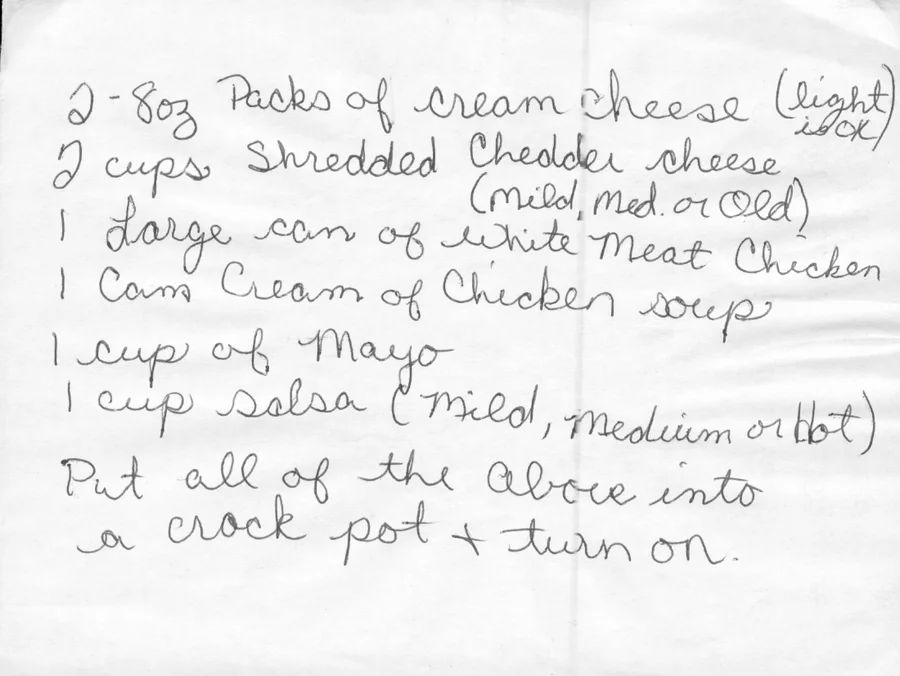 2-8oz Packs of cream cheese (light
is ok)
2 cups Shredded Chedder cheese
(Mild, Med. or Old)
1 Large can of White Meat Chicken
1 Cam Cream of Chicken soup
1 cup of Mayo
1 cup salsa (Mild, Medium or Hot)
Put all of the above into
a crock pot + turn on.